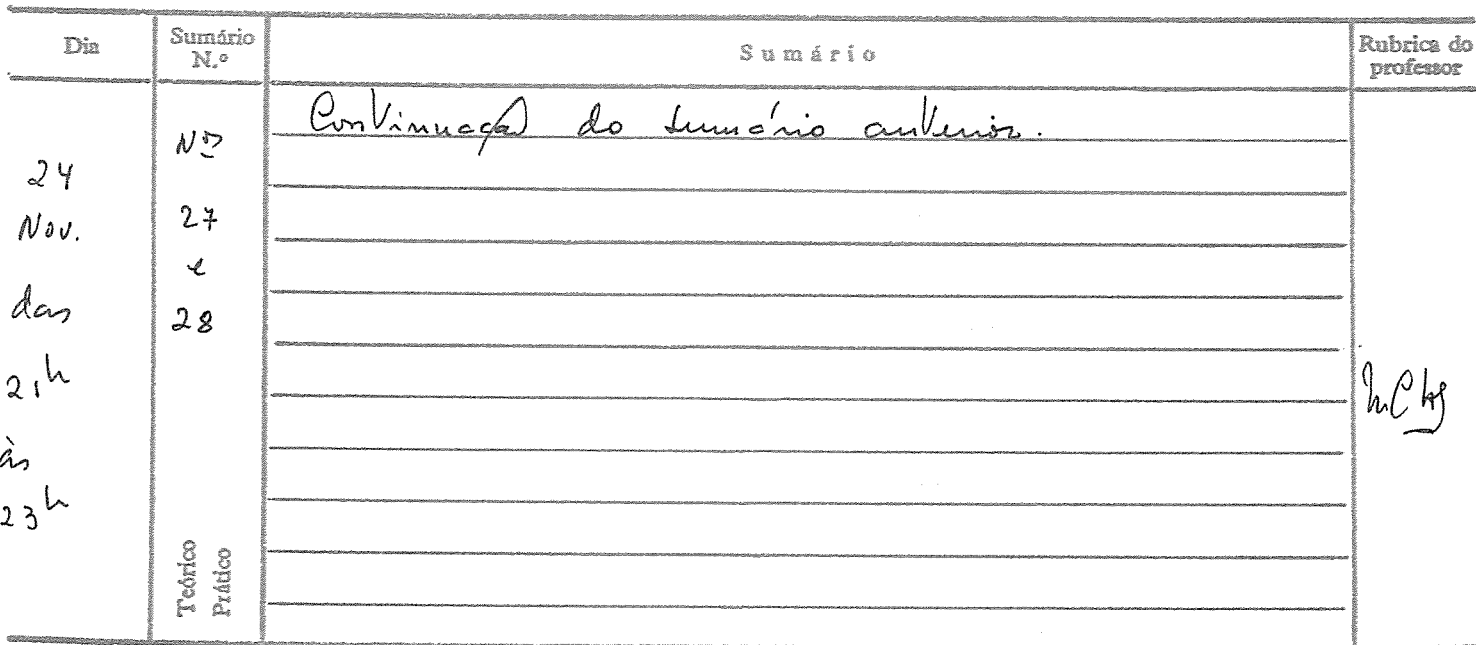 Dia
Sumário
N.º
Sumário
Rubrica do
professor
24
Nov.
das
21h
às
23h
Nº
27
e
28
Teórico
Prático
Continuação do sumário anterior.